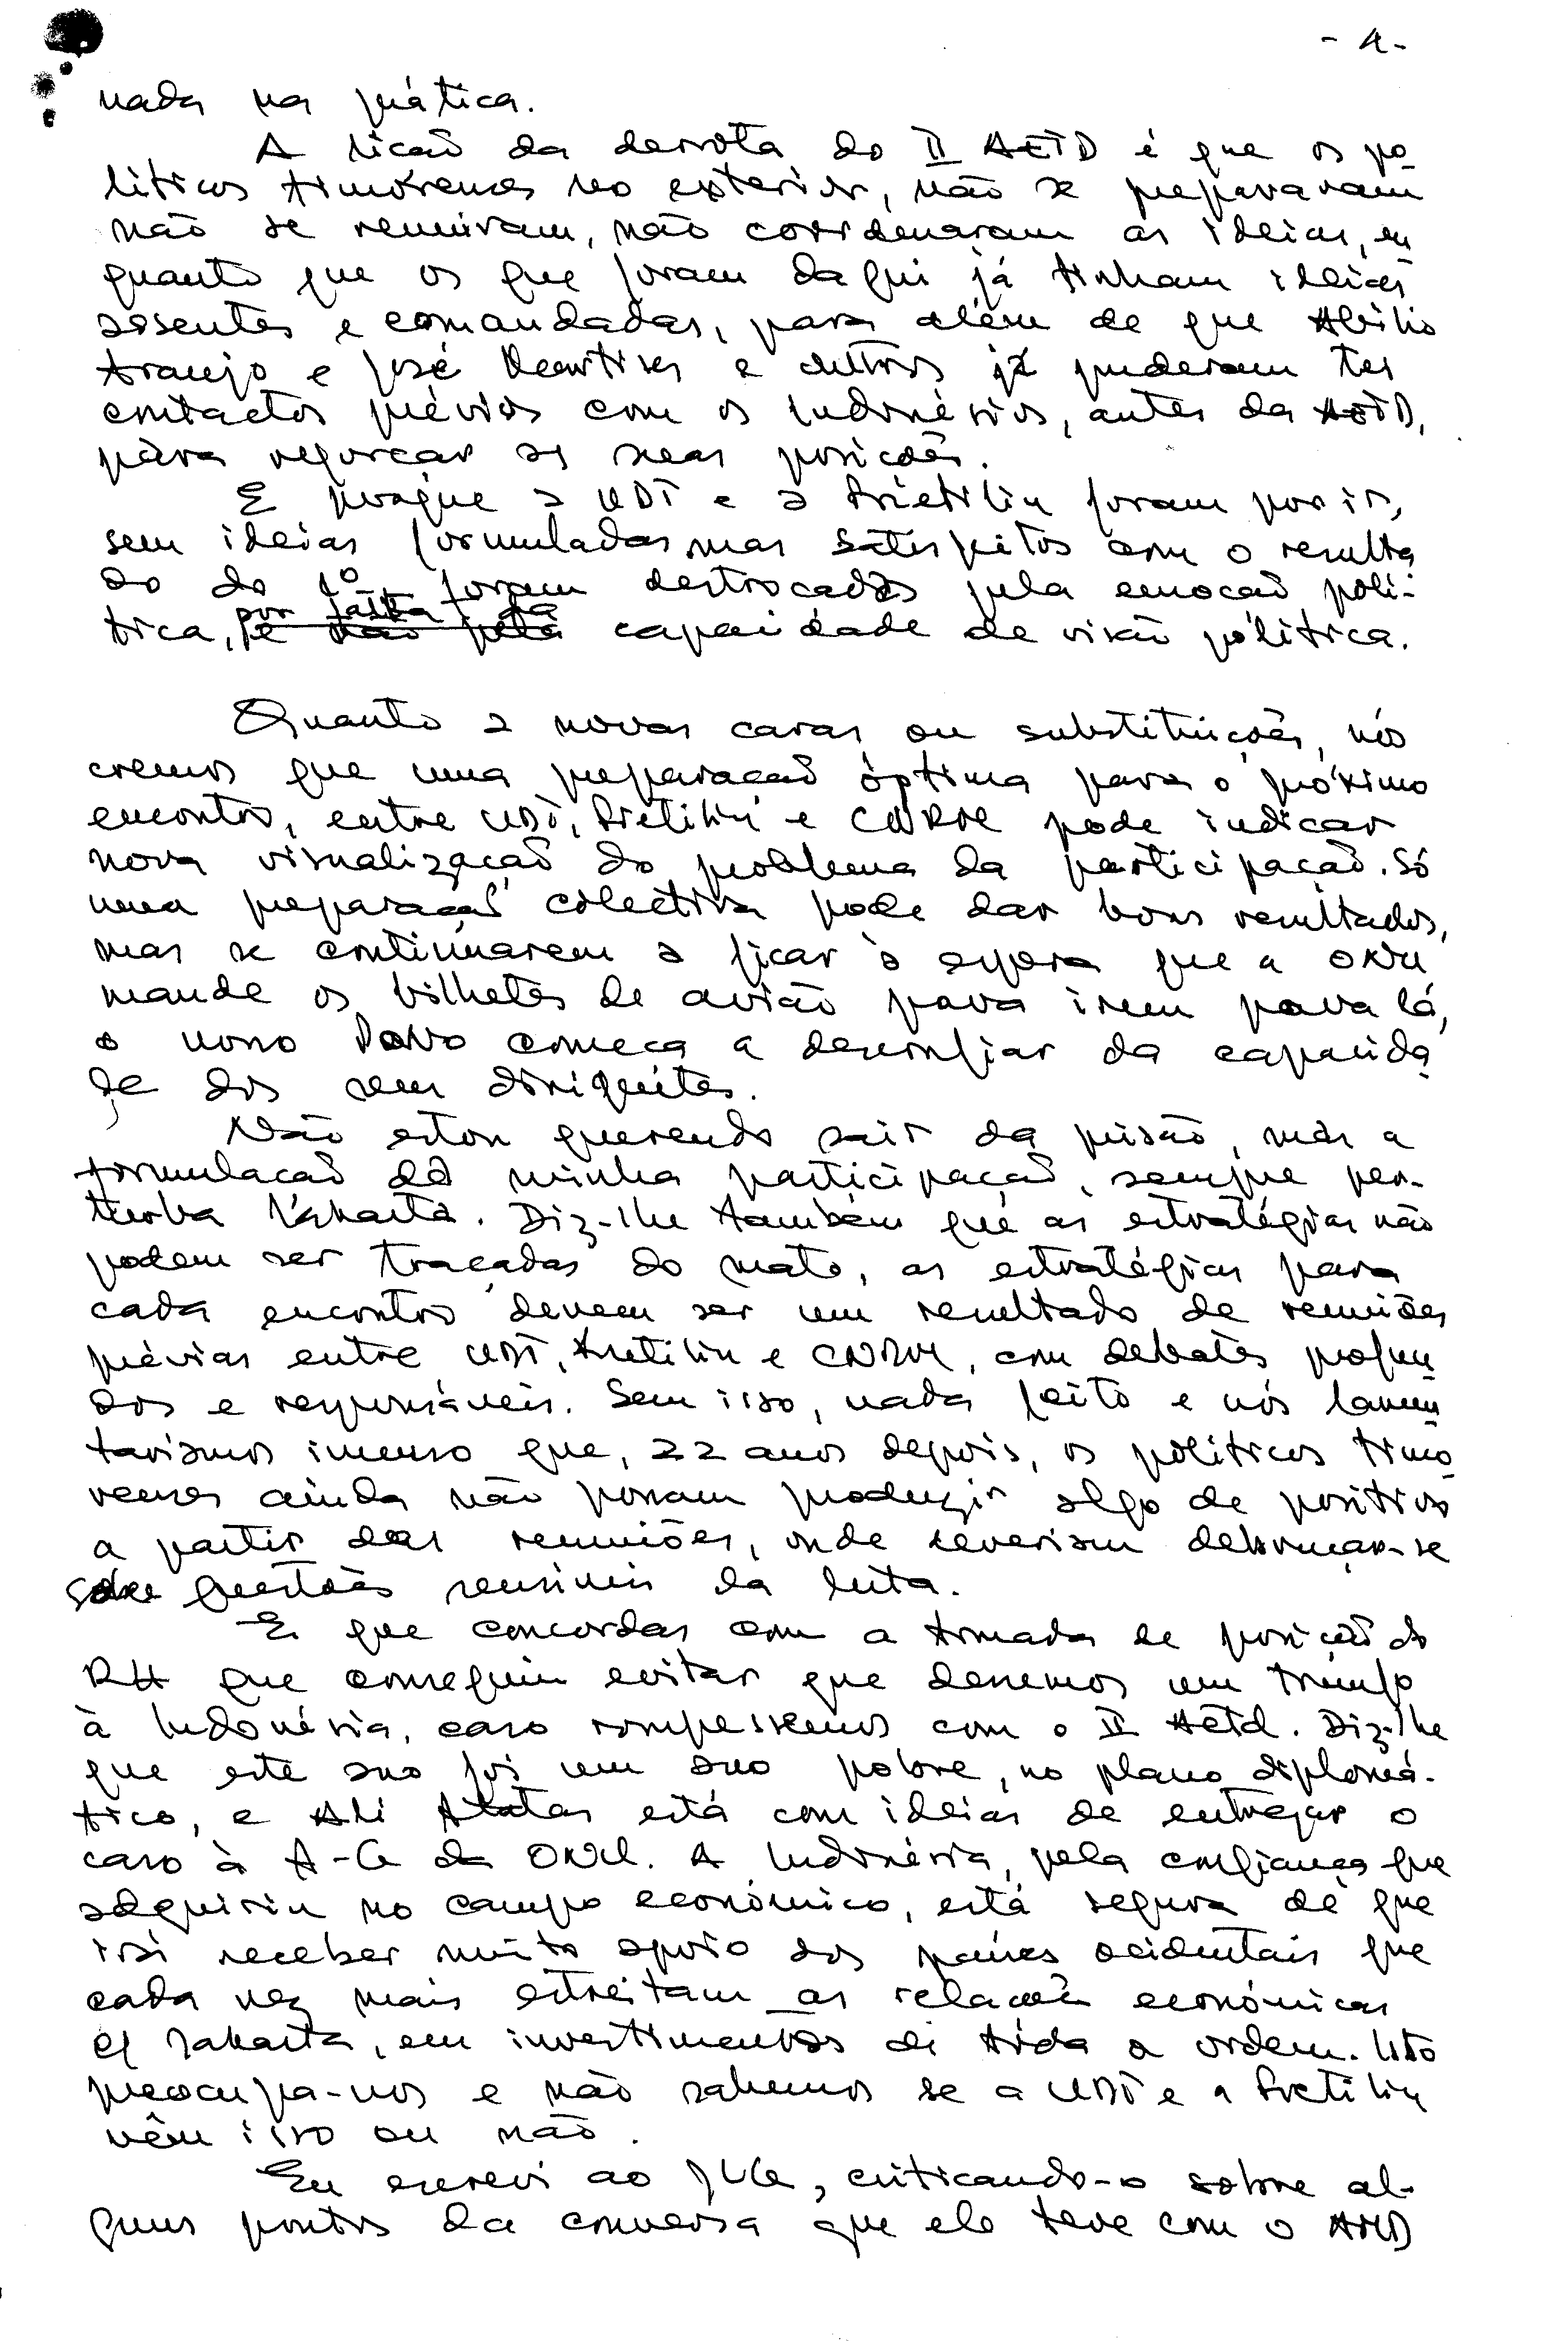 - 4 -
nada na prática.
A lição da derrota do II AETD é que os po
líticos timorenses no exterior, não se prepararam
não se reuniram, não coordenaram as ideias, en
quanto que os que foram daqui já tinham ideias
assentes e comandadas, para além de que Abílio
Araujo e José Martins e outros já puderam ter
contactos prévios com os indonésios, antes da AETD,
para reforçar as suas posições.
E porque a UDT e a Fretilin foram por ir,
sem ideias formuladas mas satisfeitos com o resulta
do do 1º foram destroçados pela emoção polí-
tica, por falta da capacidade de visão política.
Quanto a novas caras ou substituições, nós
cremos que uma preparação óptima para o próximo
encontro, entre UDT, Fretilin e CNRM pode indicar
nova visualização do problema da participação. Só
uma preparação colectiva pode dar bons resultados,
mas se continuarem a ficar à espera que a ONU
mande os bilhetes de avião para irem para lá,
o nosso Povo começa a desconfiar da capacida
de dos seus dirigentes.
Não estou querendo sair da prisão, mas a
formulação da minha participação, sempre per-
turba Jakarta. Diz-lhe também que as estratégias não
podem ser traçadas do mato, as estratégias para
cada encontro devem ser um resultado de reuniões
prévias entre UDT, Fretilin e CNRM, com debates profun
dos e responsáveis. Sem isso, nada feito e nós lamen
taríamos imenso que, 22 anos depois, os políticos timo
renses ainda não possam produzir algo de positivo
a partir das reuniões, onde deveriam debruçar-se
sobre questões sensíveis da luta.
E que concordas com a tomada de posição do
RH que conseguiu evitar que dessemos um trunfo
à Indonésia, caso rompessemos com o II Aetd. Diz-lhe
que este ano foi um ano pobre, no plano diplomá-
tico, e Ali Alatas está com ideias de entregar o
caso à A-G da ONU. A Indonésia, pela confiança que
adquiriu no campo económico, está segura de que
irá receber muito apoio dos países ocidentais que
cada vez mais estreitam as relações económicas
c/ Jakarta, em investimentos de toda a ordem. Isto
preocupa-nos e não sabemos se a UDT e a Fretilin
vêm isso ou não.
Eu escrevi ao JLG, criticando-o sobre al-
guns pontos da conversa que ele teve com o